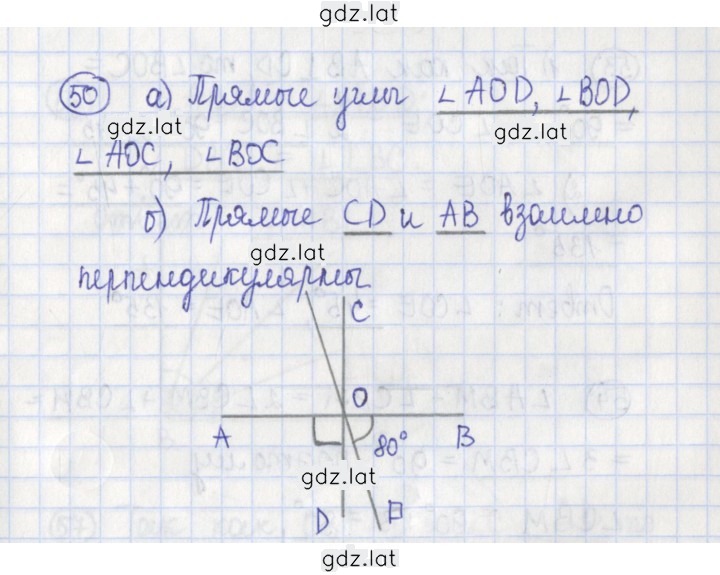 gdz.lat
50 а) Прямые углы ∠AOD, ∠BOD,
gdz.lat gdz.lat
∠AOC, ∠BOC
б) Прямые CD и AB взаимно
gdz.lat
перпендикулярны
C
O
A B
80°
gdz.lat
D
gdz.lat